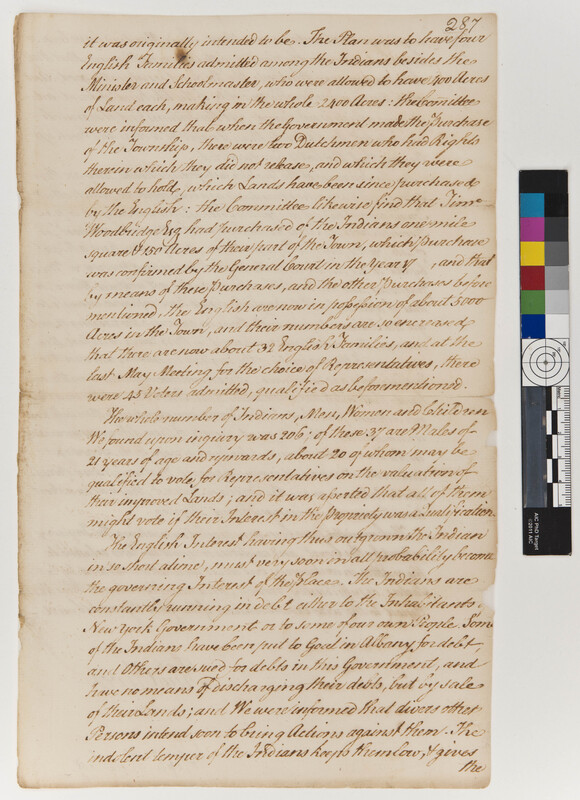 287
it was originally intended to be. The Plan was to have four
English Families admitted among the Indians besides the
Minister and Schoolmaster, who were allowed to have 400 Acres
of Land each, making in the whole 2400 Acres: the Comittee
were informed that when the Government made the Purchase
of the Township, there were two Dutchmen who had Rights
therein which they did not release, and which they were
allowed to hold, which Lands have been since purchased
by the English: the Committee likewise find that Timo
Woodbridge Esq had purchased of the Indians one mile
square & 150 Acres of their part of the Town, which Purchase
was confirmed by the General Court in the Year 17 , and that
by means of these Purchases, and the other Purchases before
mentioned, the English are now in possession of about 5000
Acres in the Town, and their numbers are so encreased
that there are now about 32 English Families, and at the
last May Meeting for the choice of Representatives, there
were 45 Voters admitted, qualified as beforementioned.
The whole number of Indians, Men, Women and Children
We found upon inquiry was 206; of these 37 are Males of
21 years of age and upwards, about 20 of whom may be
qualified to vote for Representatives on the valuation of
their improved Lands; and it was asserted that all of them
might vote if their Interest in the Propriety was a Qualification
The English Interest having thus outgrown the Indian
in so short a time, must very soon in all probability become
the governing Interest of the Place. The Indians are
constantly running in debt either to the Inhabitants
New York Government or to some of our own People. Some
of the Indians have been put to Goal in Albany for debt,
and Others are sued for debts in this Government, and
have no means of discharging their debts, but by sale
of their Lands; and We were informed that divers other
Persons intend soon to bring Actions against them. The
indolent temper of the Indians keeps them low, & gives
the
AIC PhD Target
©2011 AIC